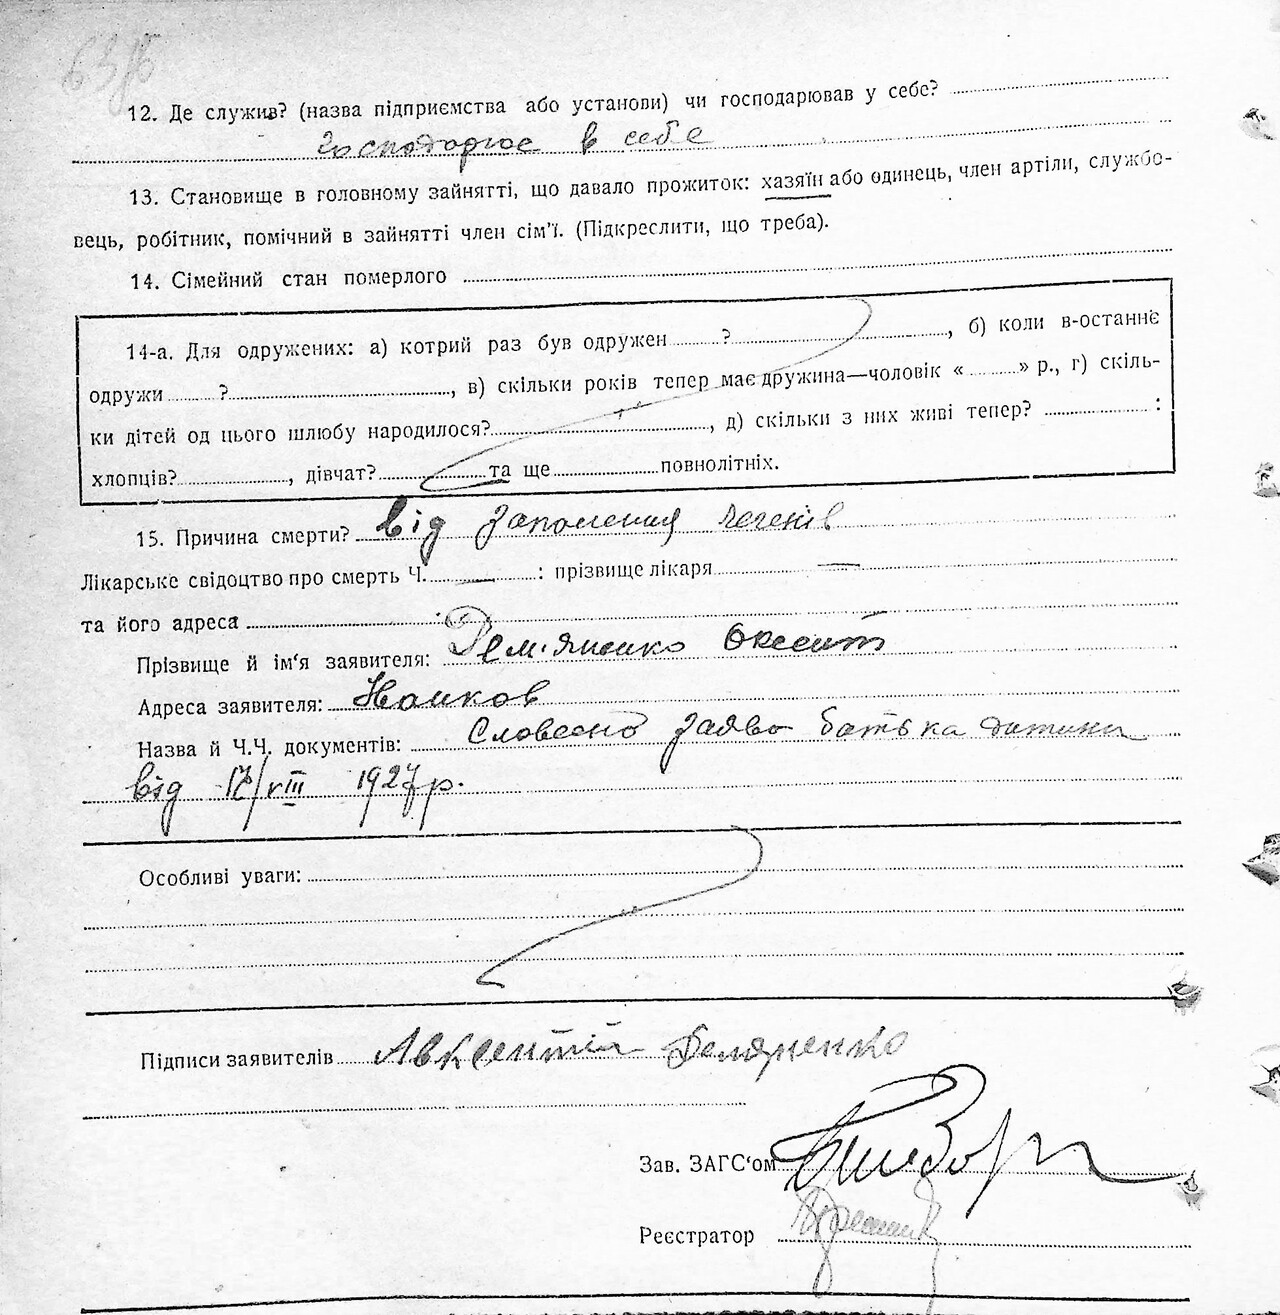 12. Де служив? (назва підприємства або установи) чи господарював у себе?
Господарює в себе
13. Становище в головному зайнятті, що давало прожиток: хазяїн або одинець, член артіли, службо-
вець, робітник, помічний в зайнятті член сім'ї. (Підкреслити, що треба).
14. Сімейний стан померлого
14-а. Для одружених: а) котрий раз був одружен ? , б) коли в-останнє
одружи ? , в) скільки років тепер має дружина—чоловік « » р., г) скіль-
ки дітей од цього шлюбу народилося? , д) скільки з них живі тепер? :
хлопців? , дівчат? та ще повнолітніх.
15. Причина смерти? Від запалення легенів
Лікарське свідоцтво про смерть Ч. — : прізвище лікаря —
та його адреса
Прізвище й ім'я заявителя: Дем'яненко Оксент
Адреса заявителя: Йванков
Назва й Ч.Ч. документів: Словесно заява батька дитини
від 17/VIII 1927 р.
Особливі уваги:
Підписи заявителів Авксентій Демяненко
Зав. ЗАГС'ом
Реєстратор